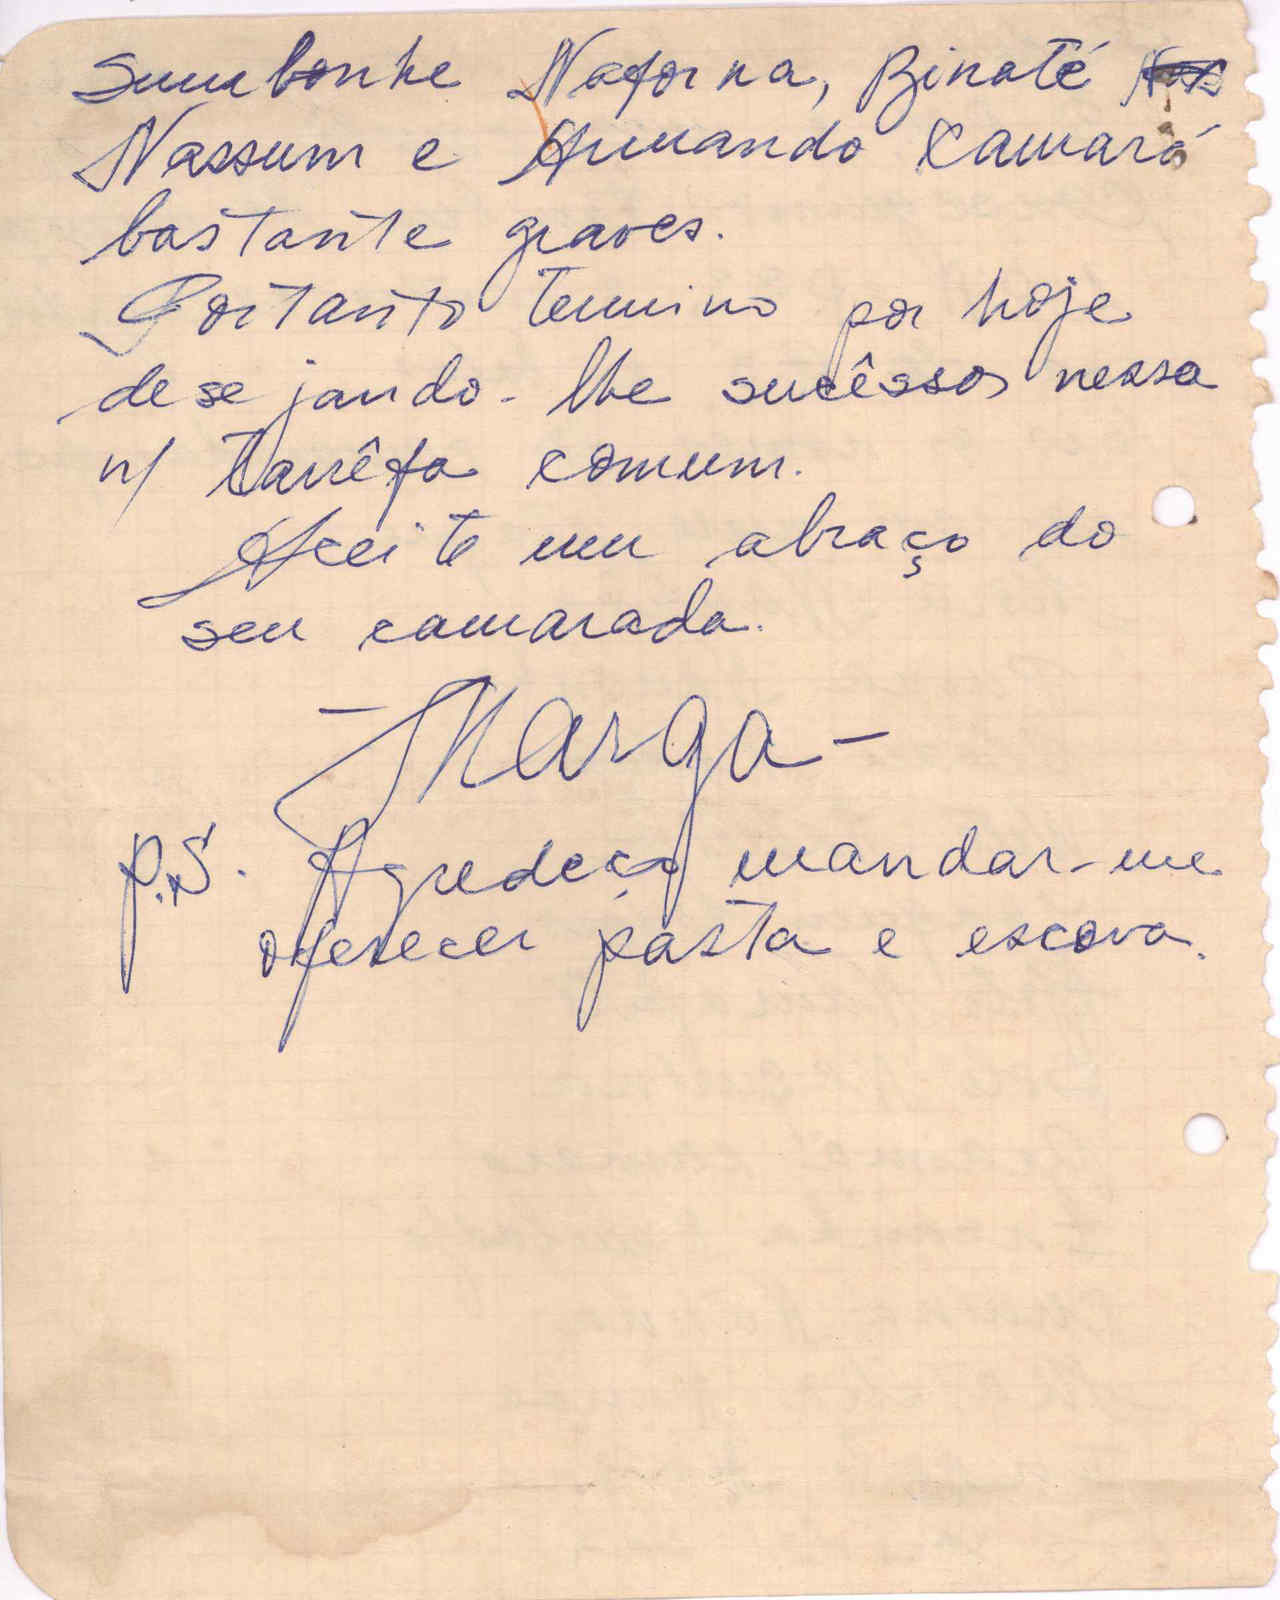 Sumbonhe Naforna, Binaté
Nassum e Armando Camará
bastante graves.
Portanto termino por hoje
desejando-lhe sucêssos nessa
n/ tarrêfa comum.
Aceite um abraço do
seu camarada.
- Marga -
P.S. Agredeço mandar-me
oferecer pasta e escova.